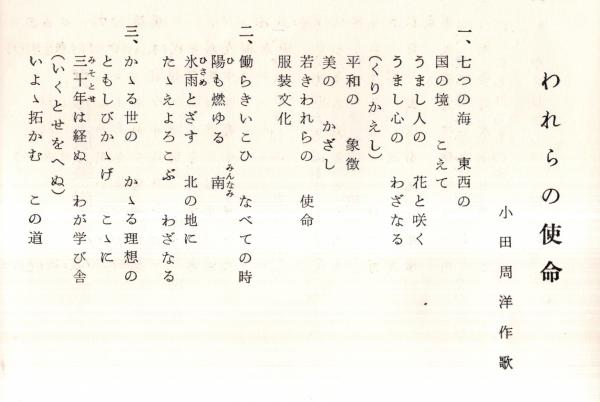 われらの使命
小田周洋作歌
一、七つの海　東西の
国の境　こえて
うまし人の　花と咲く
うまし心の　わざなる
（くりかえし）
平和の　象徴
美の　かざし
若きわれらの　使命
服装文化
二、働らきいこひ　なべての時
陽も燃ゆる　南
ひ　みんなみ
氷雨とざす　北の地に
ひさめ
たゝえよろこぶ　わざなる
三、かゝる世の　かゝる理想の
ともしびかゝげ　こゝに
三十年は経ぬ　わが学び舎
みそとせ
（いくとせをへぬ）
いよゝ拓かむ　この道